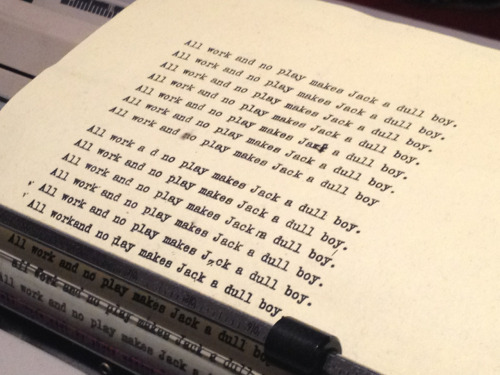 All work and no play makes Jack a dull boy.
All work and no play makes Jack a dull boy.
All work and no play makes Jack a dull boy.
All work and no play makes Jack a dull boy.
All work and no play makes Jack a dull boy.
All work and no play makes Jack a dull boy.
All work and no play makes Jack a dull boy
All work a d no play makes Jack a dull boy.
All work and no play makes Jack a dull boy.
All work and no play makes Jack a dull boy.
All work and no play makes Jack a dull boy.
All work and no play makes J ck a dull boy.
All workand no play makes Jack a dull boy
All work and no play makes Jack a dull boy
and no play makes Jack a dull
All work and no play makes Jack a dull